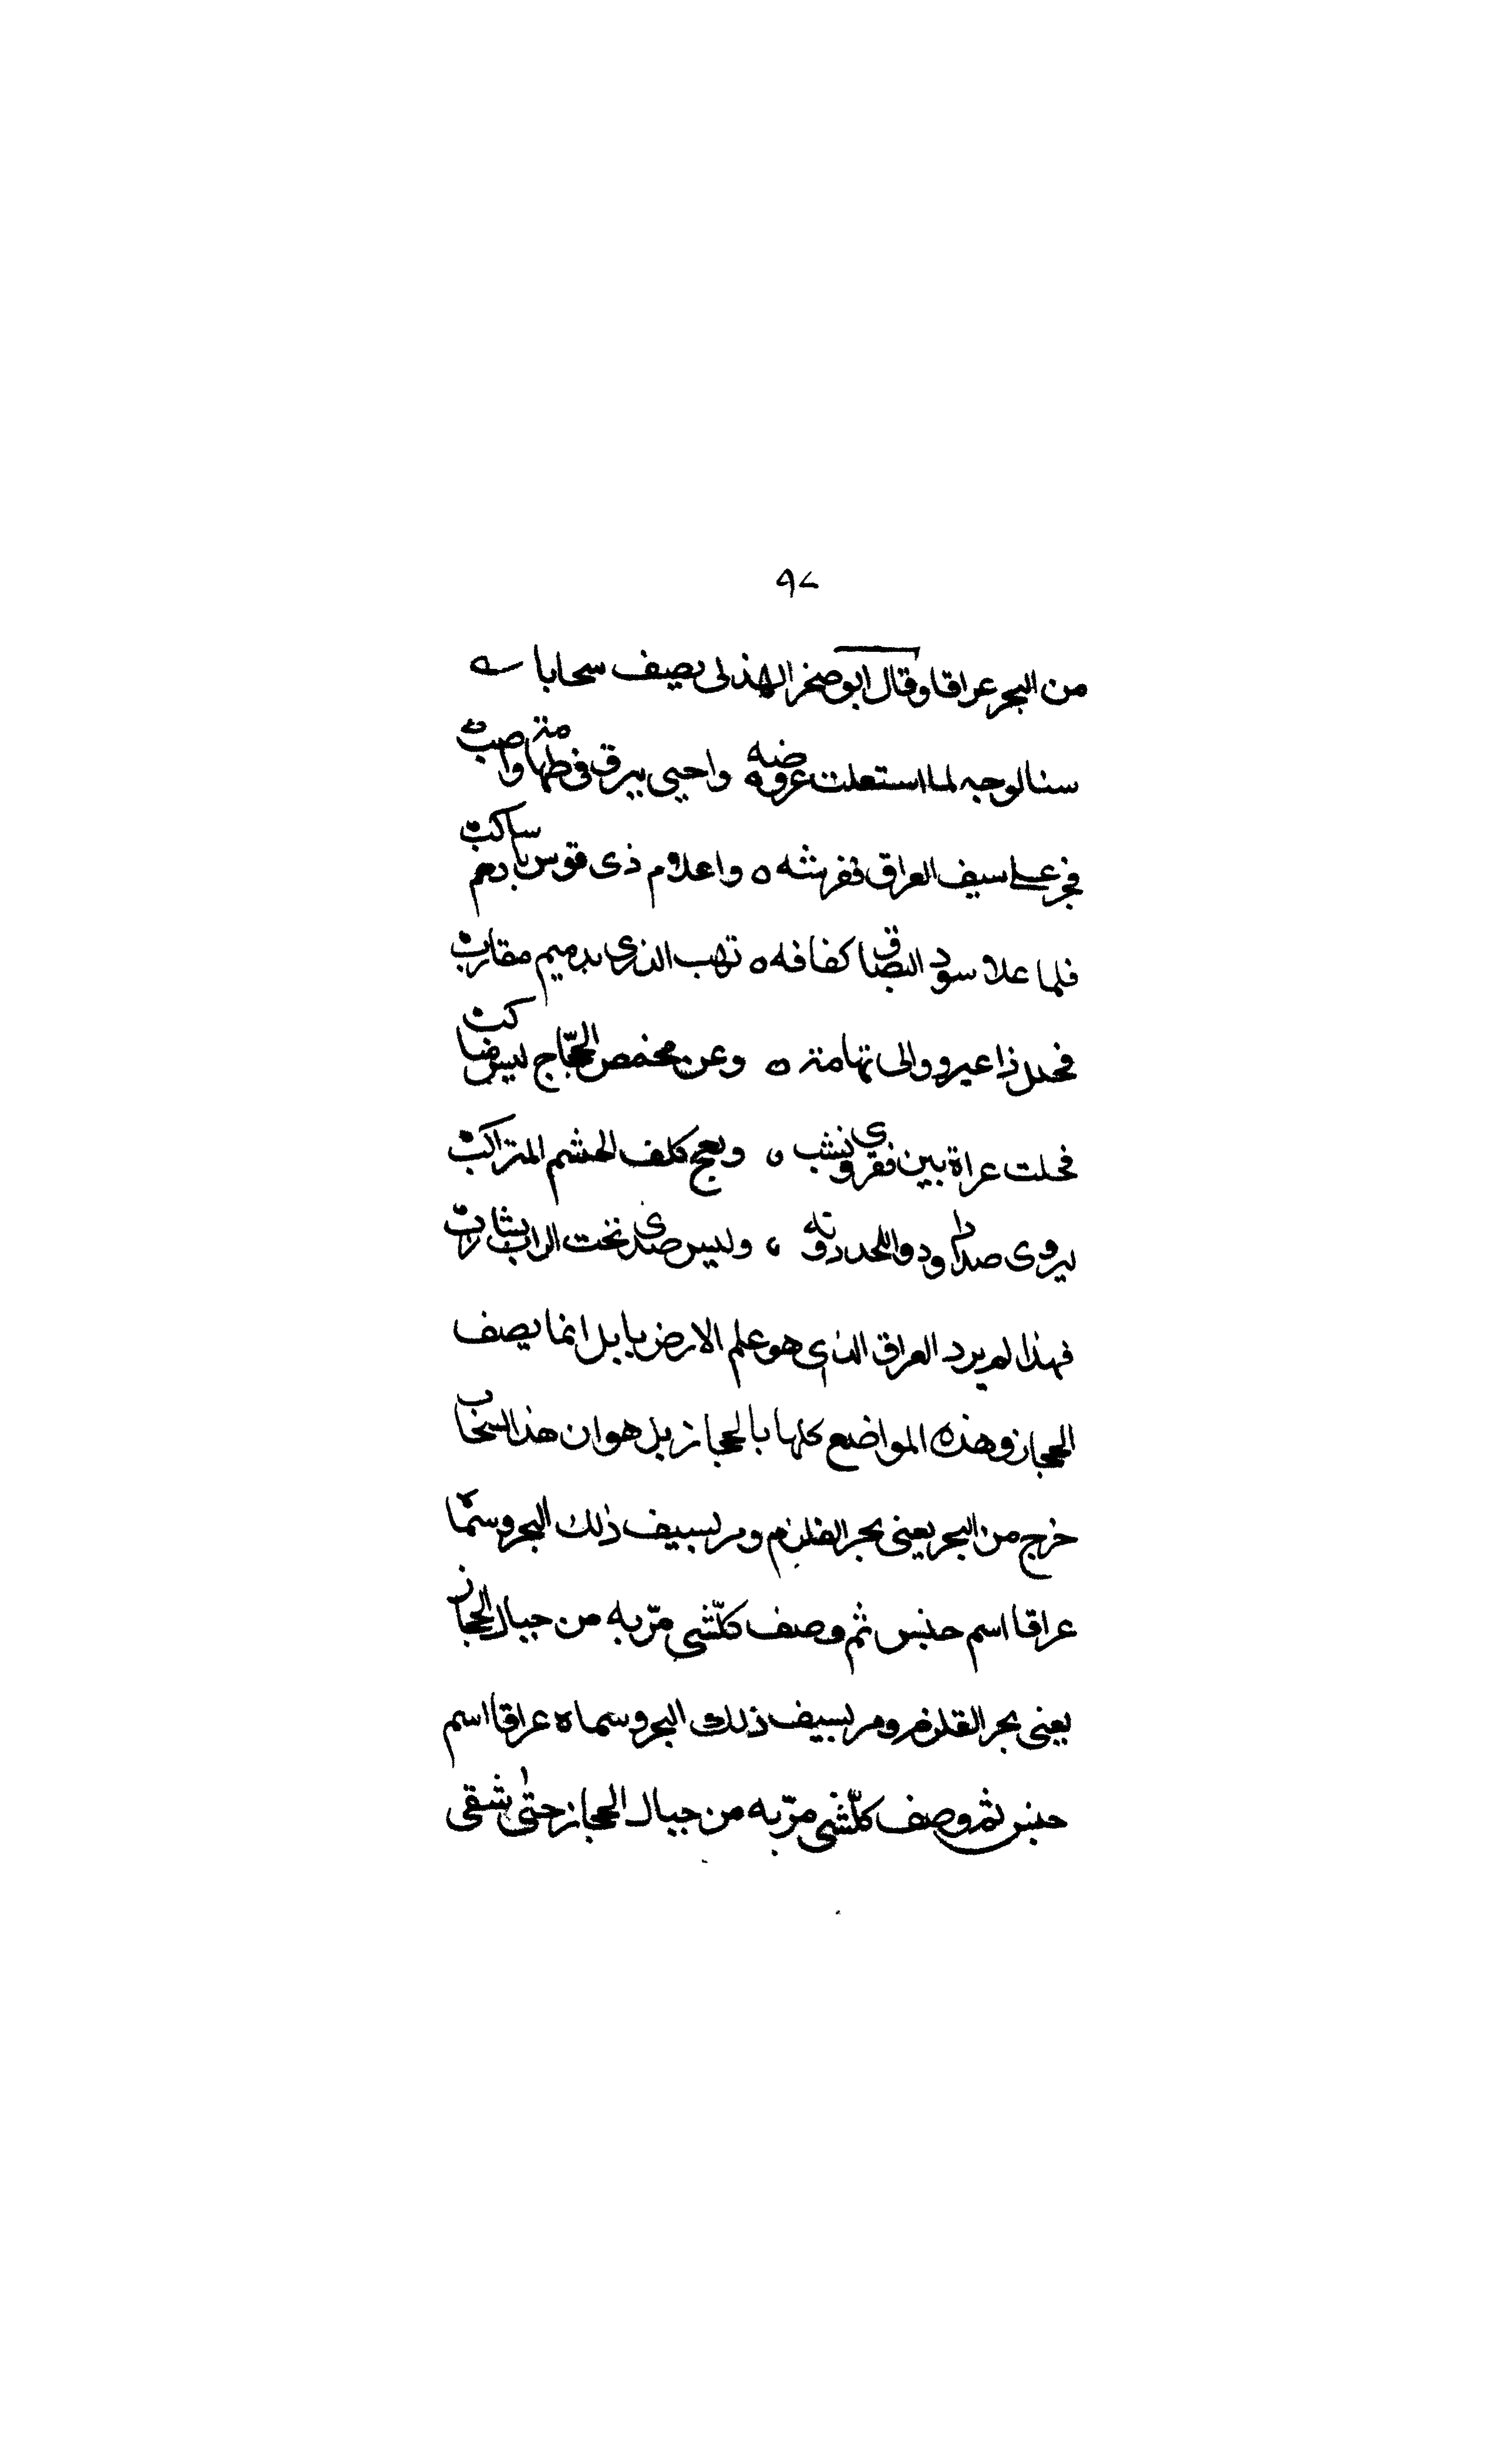 ٩٧
من البحر عراقا وقال ابو صخر الهذلى يصف سحابا
سنا لوجه لما استعلت عروضه واحيى ببرق فى تهامة واصب
فجر على سيف العراق ففرشه ه واعلام ذى قوس بادهم ساكب
فلما علا سود البصاق كفافه ه تهب الذرى بدميم مقارب
فحلل ذا عير ووالى تهامة ه وعن مخمص الحجّاج ليس بناكب
فحلت عراة بين نقرى ومنشب ه وبعج كلف الحشم المتراكب
ليروى صدا داود واللحد دونه ، وليس صدى تحت التراب بشارب
فهذا لم يرد العراق الذى هو علم الارض بابل انما يصف
الحجاز وهذه المواضع كلها بالحجاز بل هو ان هذا السحاب
خرج من البحر يعنى بحر القلزم ومر بسيف ذلك البحر وسمّاه
عراقا اسم جنس ثم وصف كلّ شى مرّ به من جبال الحجاز
يعنى بحر القلزم ومر بسيف ذلك البحر وسماه عراقا اسم
جنس ثم وصف كلّ شى مرّ به من جبال الحجاز حتى شقى